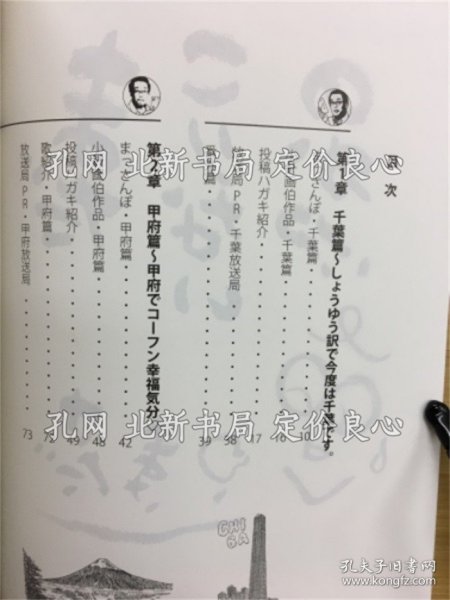 目次
第1章 千葉篇〜しょうゆう訳で今度は千葉です。
さんぽ・千葉篇 10
画伯作品・千葉篇 16
投稿ハガキ紹介 17
局PR・千葉放送局 38
篇 39
第2章 甲府篇〜甲府でコーフン幸福気分
まっさんぽ・甲府篇 42
小 画伯作品・甲府篇 48
投稿ハガキ紹介 49
歌 ・甲府篇 72
放送局PR・甲府放送局 73
CHIBA
孔网 北新书局 定价良心
孔网 北新书局 定价良心
孔网 北新书局 定价良心
孔夫子旧书网
www.kongfz.com